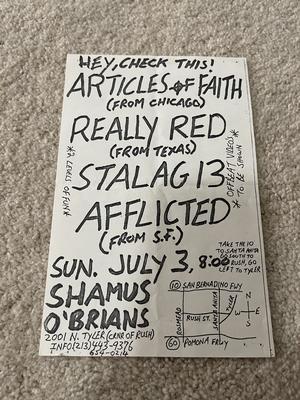 HEY, CHECK THIS!
ARTICLES OF FAITH
(FROM CHICAGO)
REALLY RED
(FROM TEXAS)
STALAG 13
AFFLICTED
(FROM S.F.)
*2 LEVELS OF FUN*
OFFBEAT VIDEOS
* TO BE SHOWN *
SUN. JULY 3, 8:00
SHAMUS
O'BRIANS
2001 N. TYLER (CRNR OF RUSH)
INFO (213) 443-9376
654-0214
TAKE THE 10
TO SANTA ANITA
GO SOUTH TO
RUSH, GO
LEFT TO TYLER
10 SAN BERNADINO FWY
ROSEMEAD
RUSH ST.
SANTA ANITA
TYLER
N
W E
S
60 POMONA FRWY